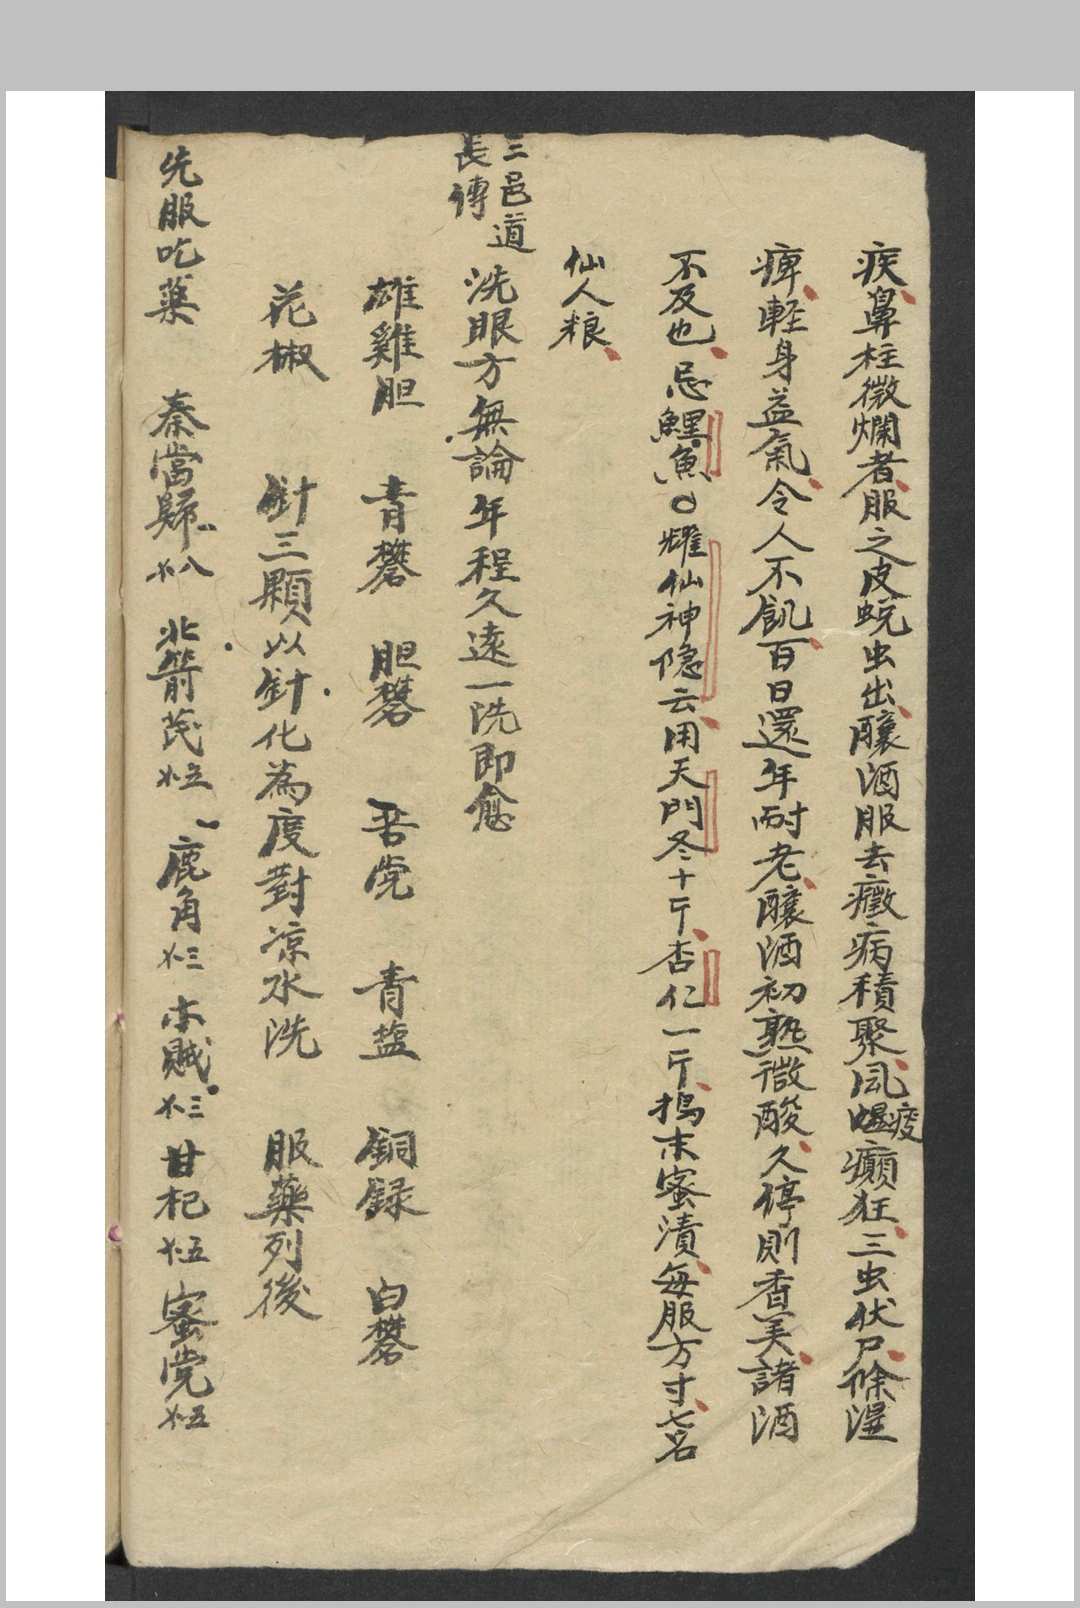 疾鼻柱微爛者服之皮蛻虫出釀酒服去癥病積聚風㾮癲狂三虫伏尸除溼
痺輕身益氣令人不飢百日還年耐老釀酒初熟微酸久停則香美諸酒
不及也忌鯉魚○耀仙神隐云用天門冬十斤杏仁一斤搗末蜜漬每服方寸七名
仙人粮
三邑道
長傳
洗眼方無論年程久遠一洗即愈
雄雞胆 青礬 胆礬 吾党 青盐 銅録 白礬
花椒 針三顆以針化為度對凉水洗 服藥列後
先服吃藥 秦當歸 北箭芪 鹿角 木賊 甘杞 蜜党